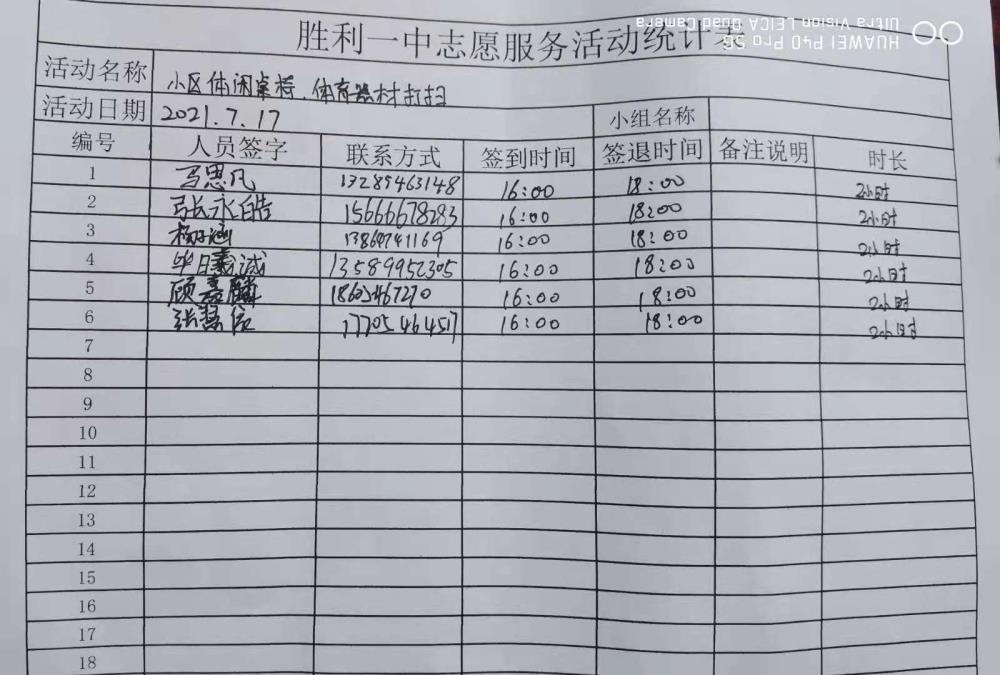 HUAWEI P40 Pro 5G
Ultra Vision LEICA Quad Camera
胜利一中志愿服务活动统计表
活动名称 小区休闲桌椅、体育器材打扫
活动日期 2021.7.17 小组名称
编号 人员签字 联系方式 签到时间 签退时间 备注说明 时长
1 马思凡 13285463148 16:00 18:00 2小时
2 张永皓 15666678283 16:00 18:00 2小时
3 杨子涵 13869741169 16:00 18:00 2小时
4 毕曦诚 13589952305 16:00 18:00 2小时
5 顾嘉麟 18605467270 16:00 18:00 2小时
6 张慧 17705464517 16:00 18:00 2小时
7
8
9
10
11
12
13
14
15
16
17
18